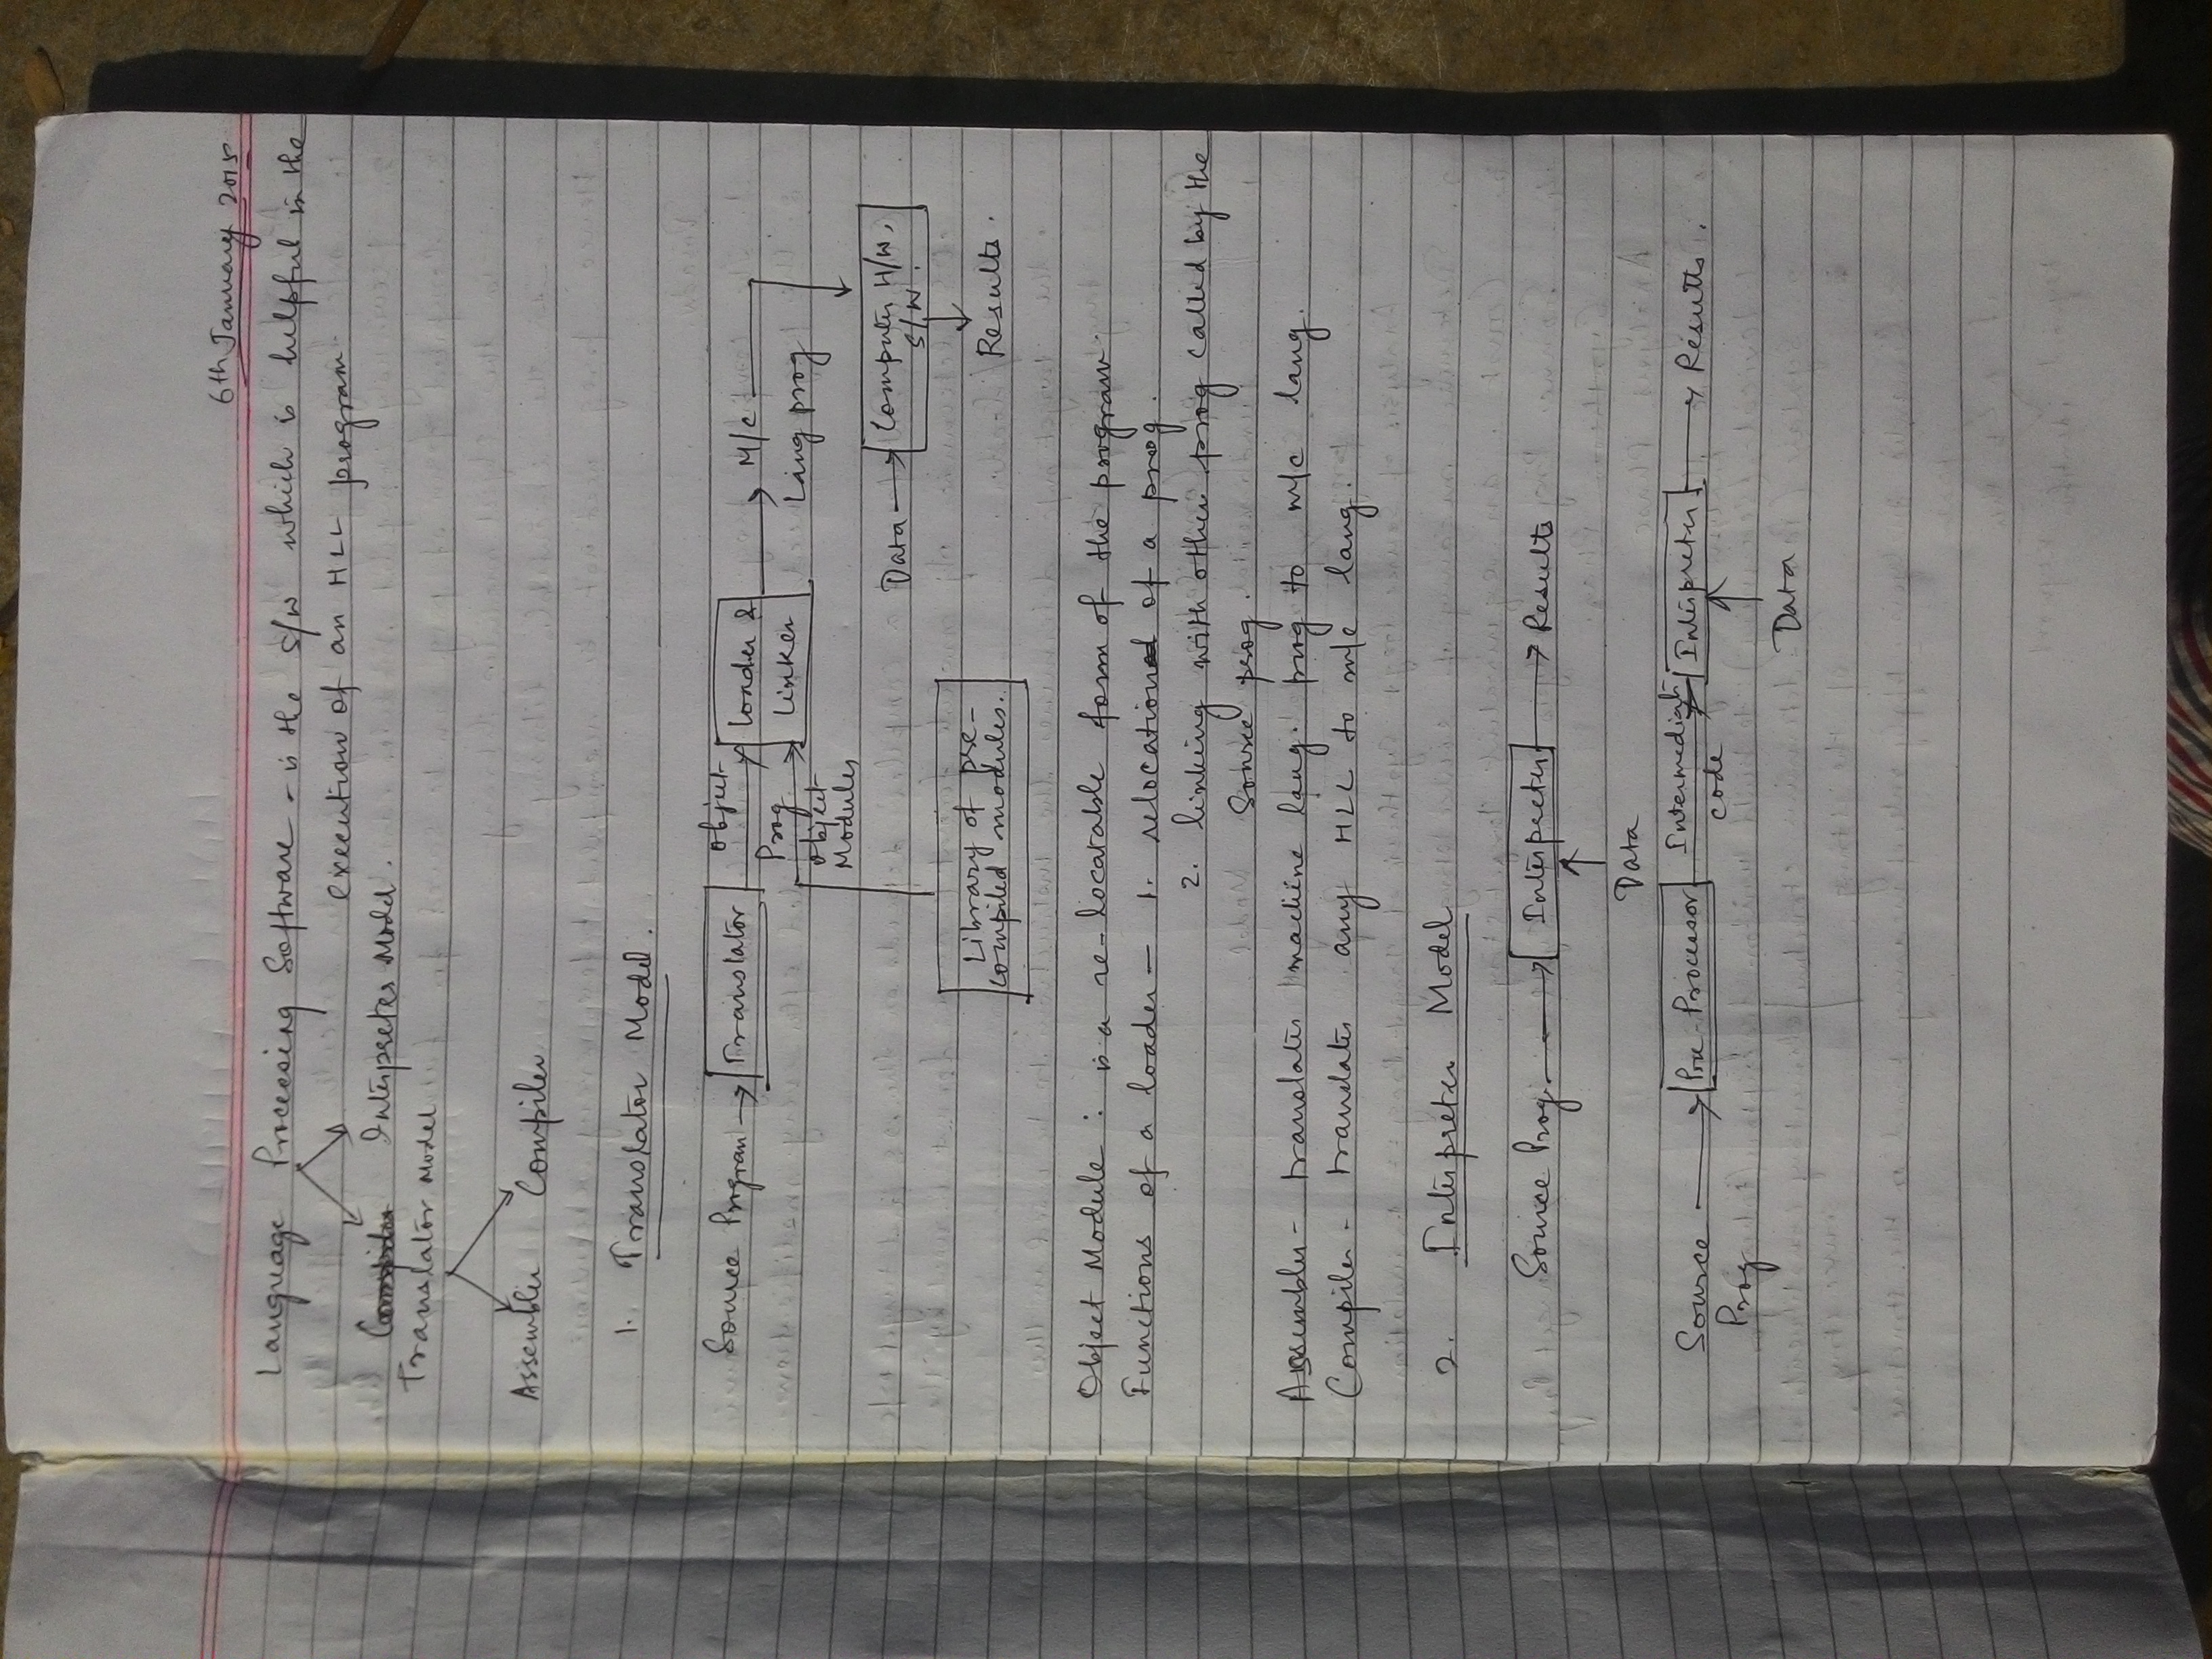 6th January 2015
Language Processing Software - is the S/W which is helpful in the
execution of an HLL program
Interpreter Model.
Translator Model
Assembler Compiler
1. Translator Model.
Source Program → Translator object Loader & → M/C
Prog → Linker Lang prog
object
Modules
Data → Computer H/W,
S/W.
Library of pre-
compiled modules.
Results.
Object Module : is a re-locatable form of the program.
Functions of a loader - 1. relocation of a prog.
2. linking with other prog called by the
Source prog.
Assembler - translates machine lang. prog to m/c lang.
Compiler - translates any HLL to m/c lang.
2. Interpreter Model
Source Prog. → Interpreter → Results
Data
Source → Pre-Processor Intermediate Interpreter → Results.
Prog code
Data